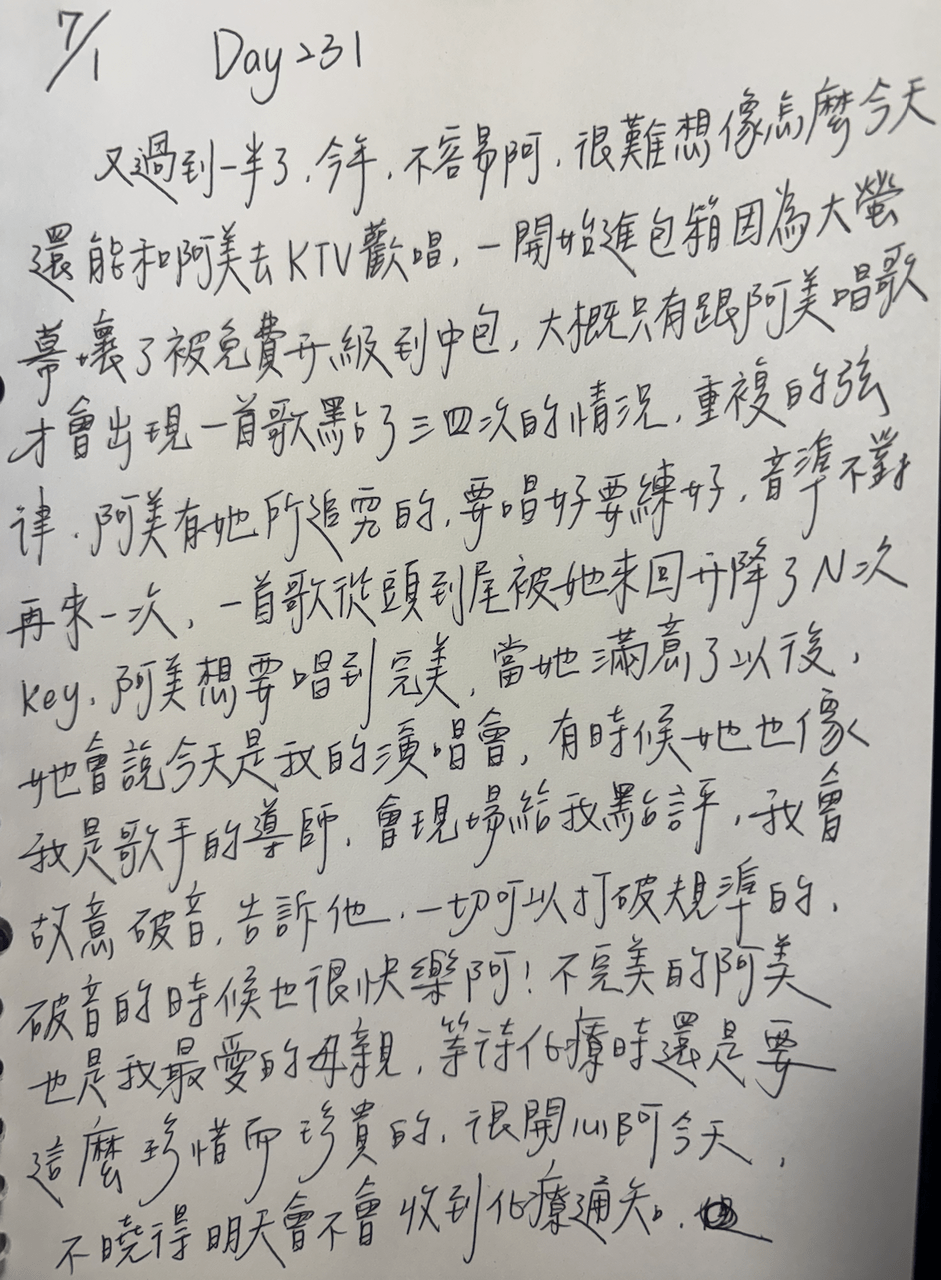 7/1 Day 231
又過到一半了,今年,不容易阿,很難想像怎麼今天
還能和阿美去KTV歡唱,一開始進包箱因為大螢
幕壞了被免費升級到中包,大概只有跟阿美唱歌
才會出現一首歌點了三四次的情況,重複的弦
律.阿美有她所追究的,要唱好要練好,音準不對
再來一次,一首歌從頭到尾被她來回升降了N次
key,阿美想要唱到完美,當她滿意了以後,
她會說今天是我的演唱會,有時候她也像
我是歌手的導師,會現場給我點評,我會
故意破音,告訴他,一切可以打破規準的,
破音的時候也很快樂阿!不完美的阿美
也是我最愛的母親,等待化療時還是要
這麼珍惜而珍貴的,很開心阿今天,
不曉得明天會不會收到化療通知。